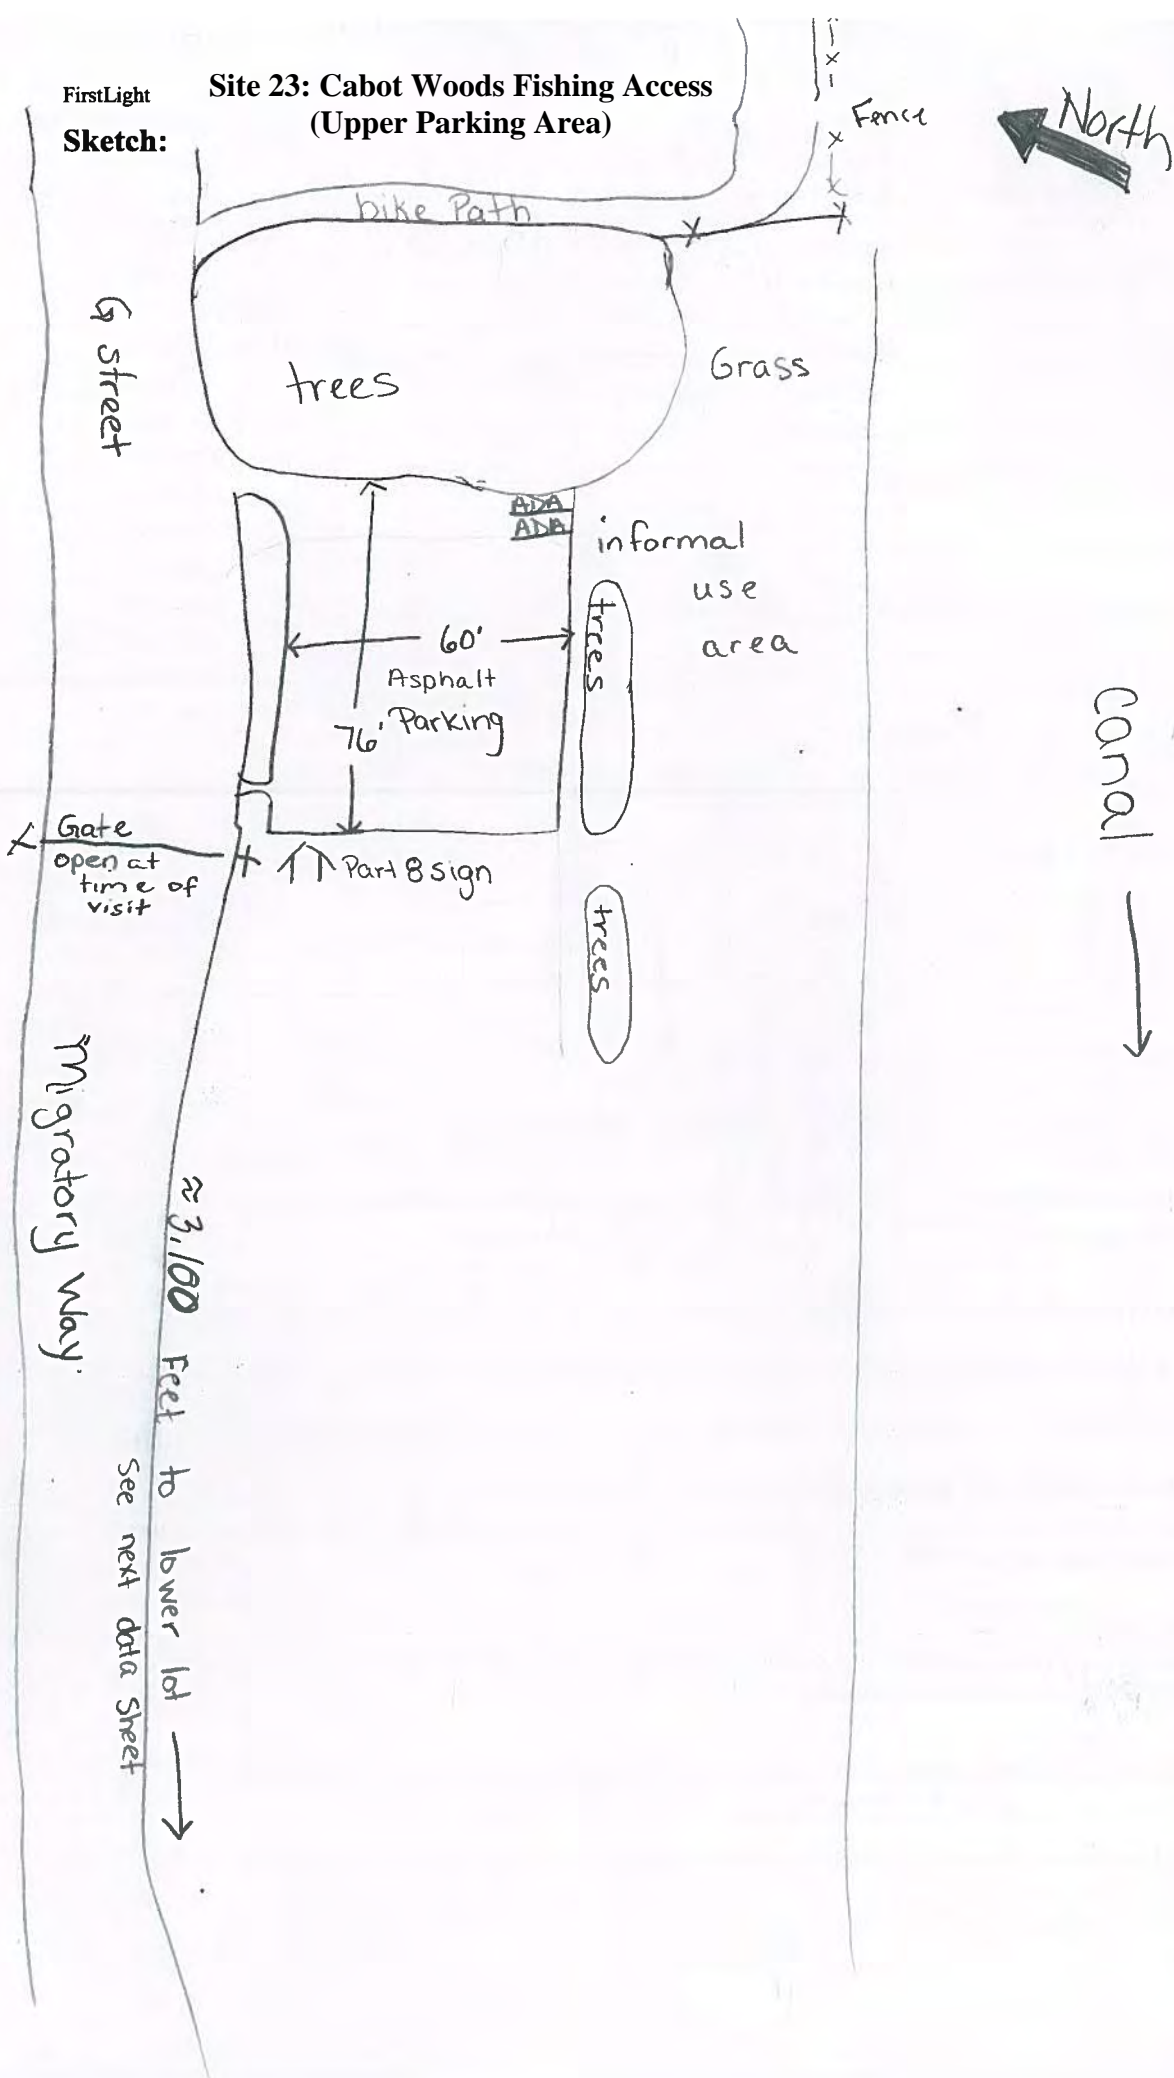 FirstLight
Site 23: Cabot Woods Fishing Access
(Upper Parking Area)
Sketch:
North
Fence
bike Path
G street
trees
Grass
ADA
ADA
informal
use
area
trees
60'
Asphalt
Parking
76'
Canal
Gate
open at
time of
visit
Part 8 sign
trees
Migratory Way
≈ 3,100 Feet to lower lot
See next data Sheet